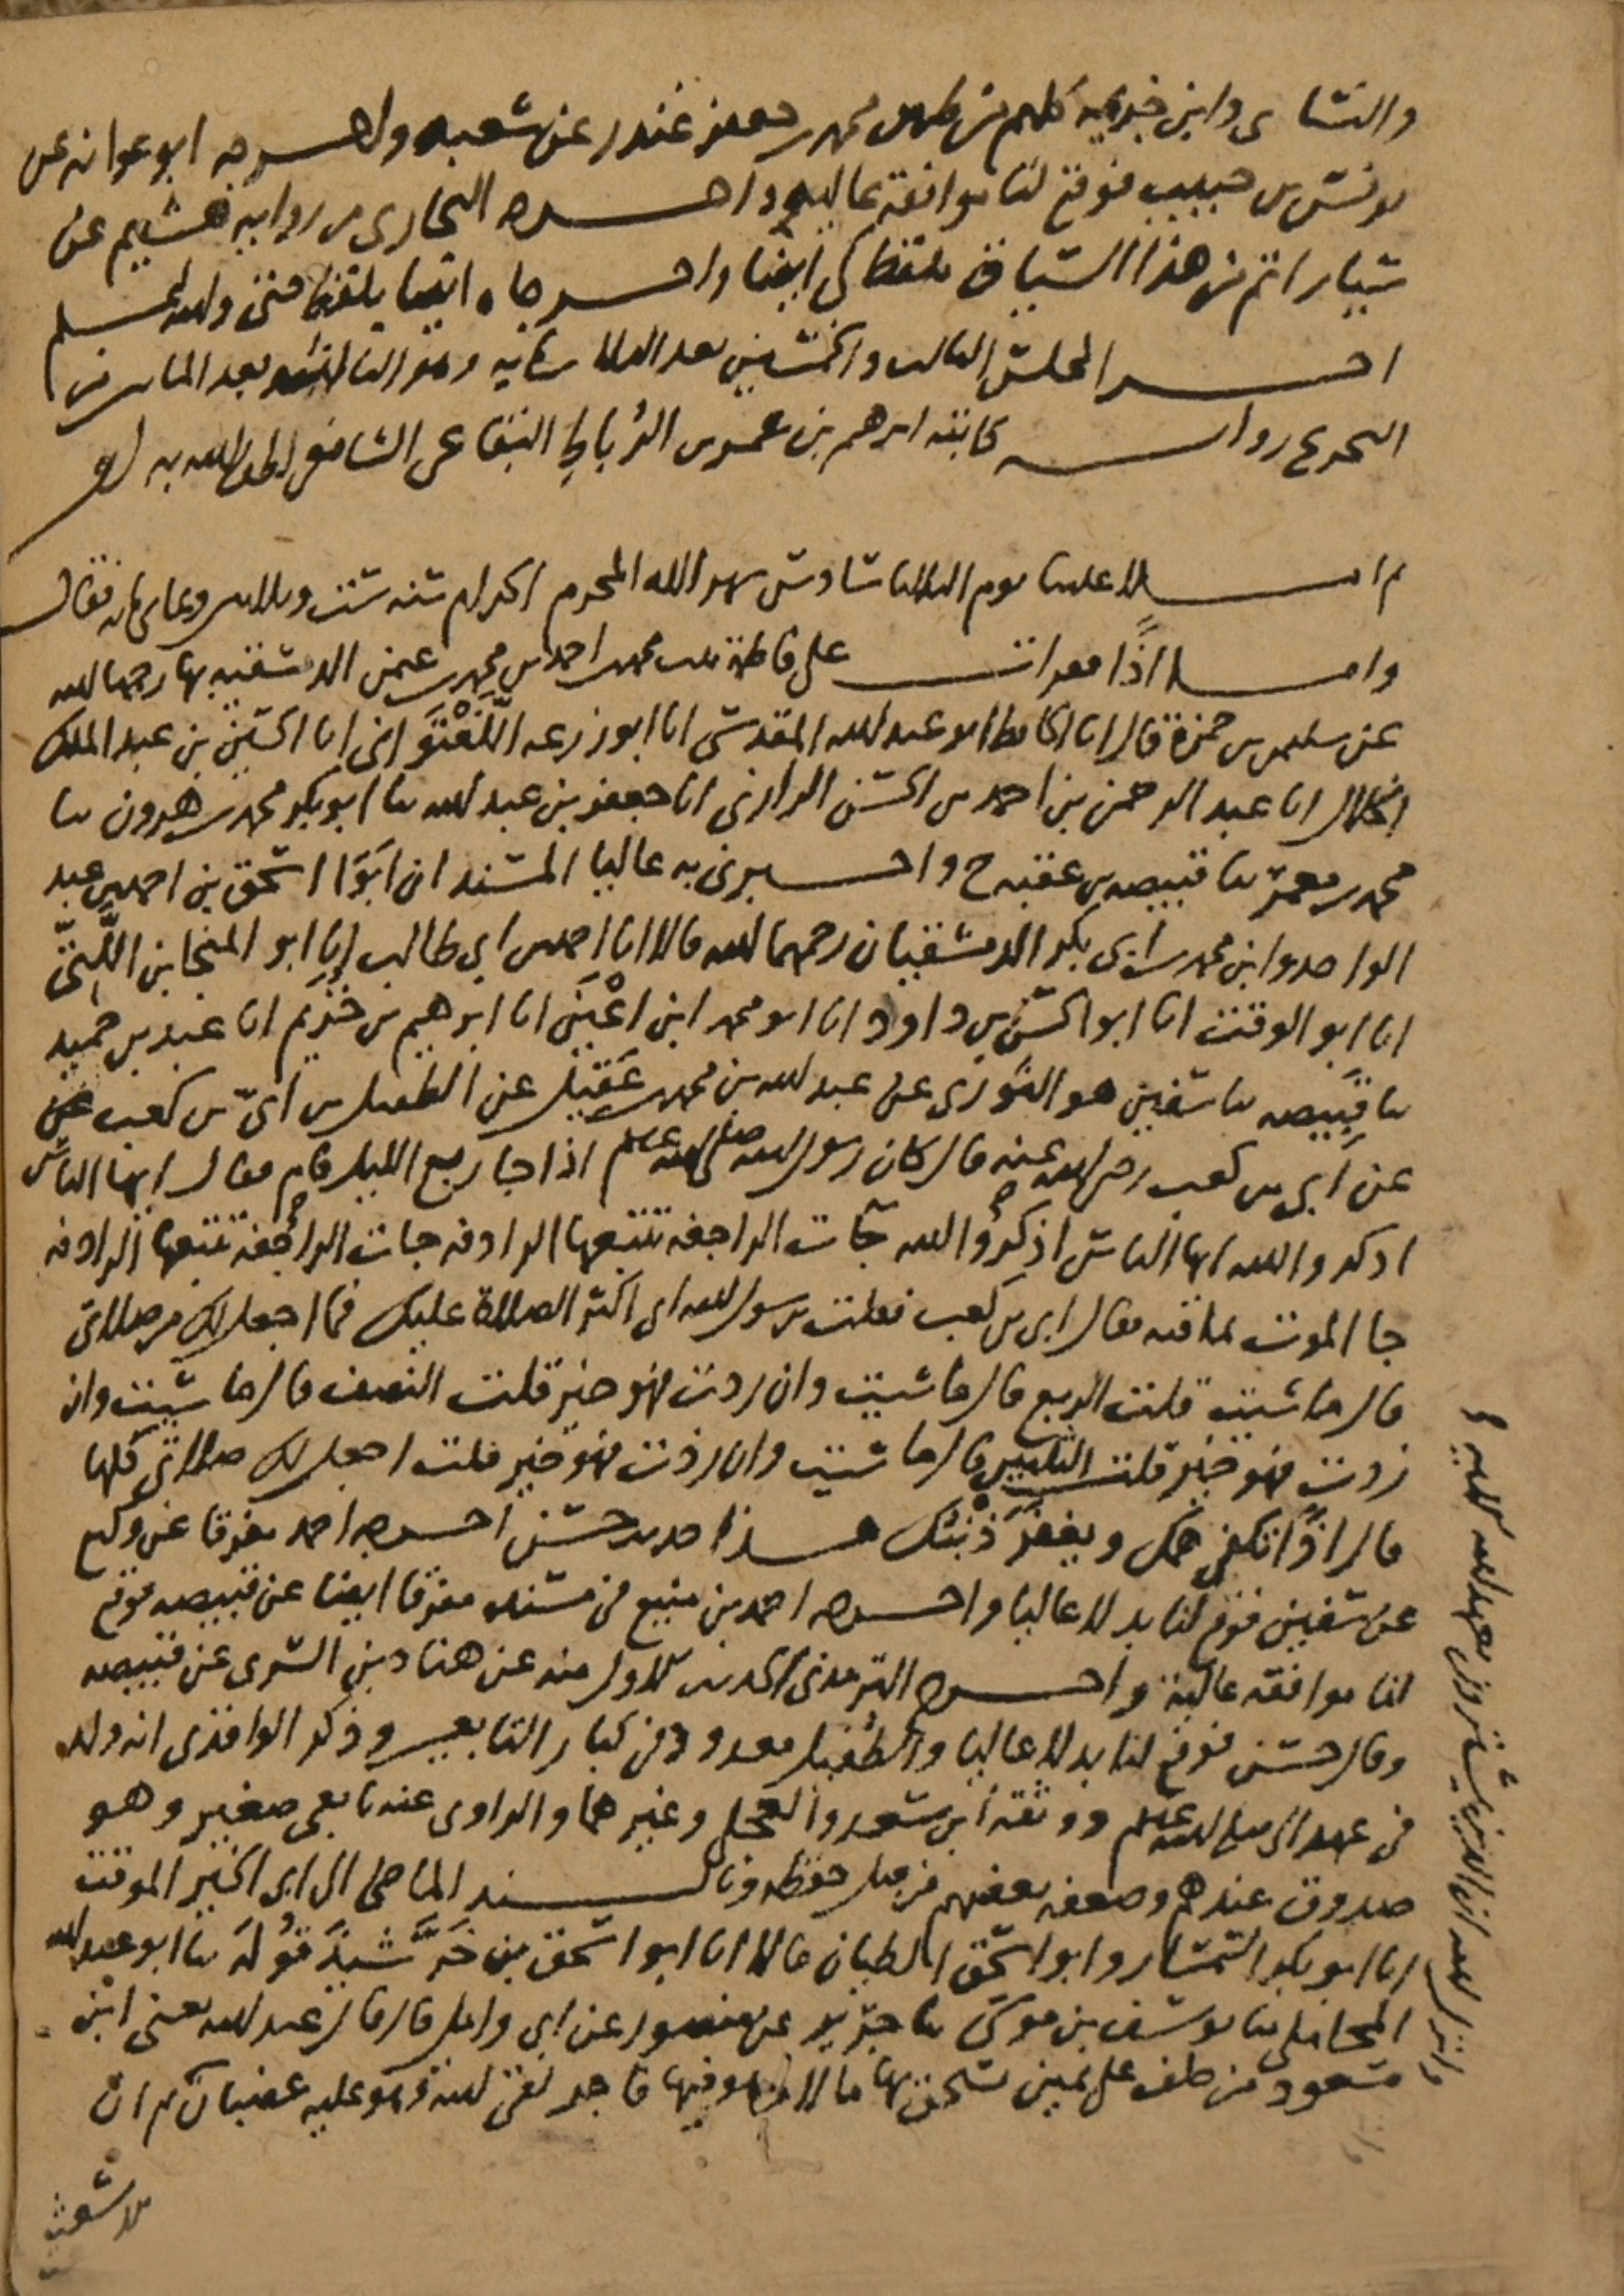 والنسائي وابن خزيمة كلهم من طريق محمد بن جعفر غندر عن شعبة واخرجه ابو عوانه عن
يونس بن حبيب فوقع لنا موافقة عالية واخرجه البخاري من رواية هشيم عن
سيار اتم من هذا السياق بلفظ ايضا واخرجاه ايضا بلفظ ولله لمسلم
اخر المجلس الثالث والخمسين بعد الثلاثمايه وهو الثالث بعد المايتين
التخريج رواية كاتبه ابرهيم بن عمر بن الرباط البقاعي الشافعي لطف الله به
ثم املا علينا يوم الثلاثا سادس شهر الله المحرم الحرام سنه ست وثلاثين وثماني مايه فقال
واما اذا فقرات على فاطمة بنت محمد بن احمد بن محمد بن عثمن الدمشقيه بها رحمها الله
عن سليمن بن حمزة قال انا الحافظ ابو عبد الله المقدسي انا ابو زرعه اللفتواني انا الحسين بن عبد الملك
الخلال انا عبد الرحمن بن احمد بن الحسن الرازي انا جعفر بن عبد الله ثنا ابو بكر محمد بن هرون ثنا
محمد بن معمر ثنا قبيصه بن عقبه ح واخبرني به عاليا المسندان ابوا اسحق بن احمد بن عبد
الواحد وابن محمد بن ابي بكر الدمشقيان رحمهما الله قالا انا احمد بن ابي طالب انا ابو المنجا بن اللتي
انا ابو الوقت انا ابو الحسن بن داود انا ابو محمد ابن اعين انا ابرهيم بن خزيم انا عبد بن حميد
ثنا قبيصه ثنا سفين هو الثوري عن عبد الله بن محمد بن عقيل عن الطفيل بن ابي بن كعب
عن ابي بن كعب رضي الله عنه قال كان رسول الله صلى الله عليه وسلم اذا جا ربع الليل قام فقال ايها الناس
اذكروا الله ايها الناس اذكروا الله جات الراجفه تتبعها الرادفه جات الراجفه تتبعها الرادفه
جا الموت بما فيه فقال ابي بن كعب فقلت يرسول الله اني اكثر الصلاة عليك فما اجعل لك من صلاتي
قال ما شيت قلت الربع قال ما شيت وان زدت فهو خير قلت النصف قال ما شيت وان
زدت فهو خير قلت الثلثين قال ما شيت وان زدت فهو خير قلت اجعل لك صلاتي كلها
قال اذا تكفى همك ويغفر ذنبك هذا حديث حسن اخرجه احمد مفرقا عن وكيع
عن سفين فوقع لنا بدلا عاليا واخرجه احمد بن منيع في مسنده مفرقا ايضا عن قبيصه فوقع
لنا موافقه عالية واخرج الترمذي الحديث الاول منه عن هناد بن السري عن قبيصه
وقال حسن فوقع لنا بدلا عاليا والطفيل معدود في كبار التابعين وذكر الواقدي انه ولد
في عهد النبي صلى الله عليه وسلم ووثقه ابن سعد والعجلي وغيرهما والراوي عنه تابعي صغير وهو
صدوق عندهم وضعفه بعضهم من قبل حفظه وبالسند الماضي الى ابي الخير الموقت
انا ابو بكر السمسار وابو اسحق الطيان قالا انا ابو اسحق بن خرشيذ قوله ثنا ابو عبد الله
المحاملي ثنا يوسف بن موسى ثنا جرير عن منصور عن ابي وائل قال قال عبد الله يعني ابن
مسعود من حلف على يمين يستحق بها مالا وهو فيها فاجر لقي الله وهو عليه غضبان ثم ان
الاشعث